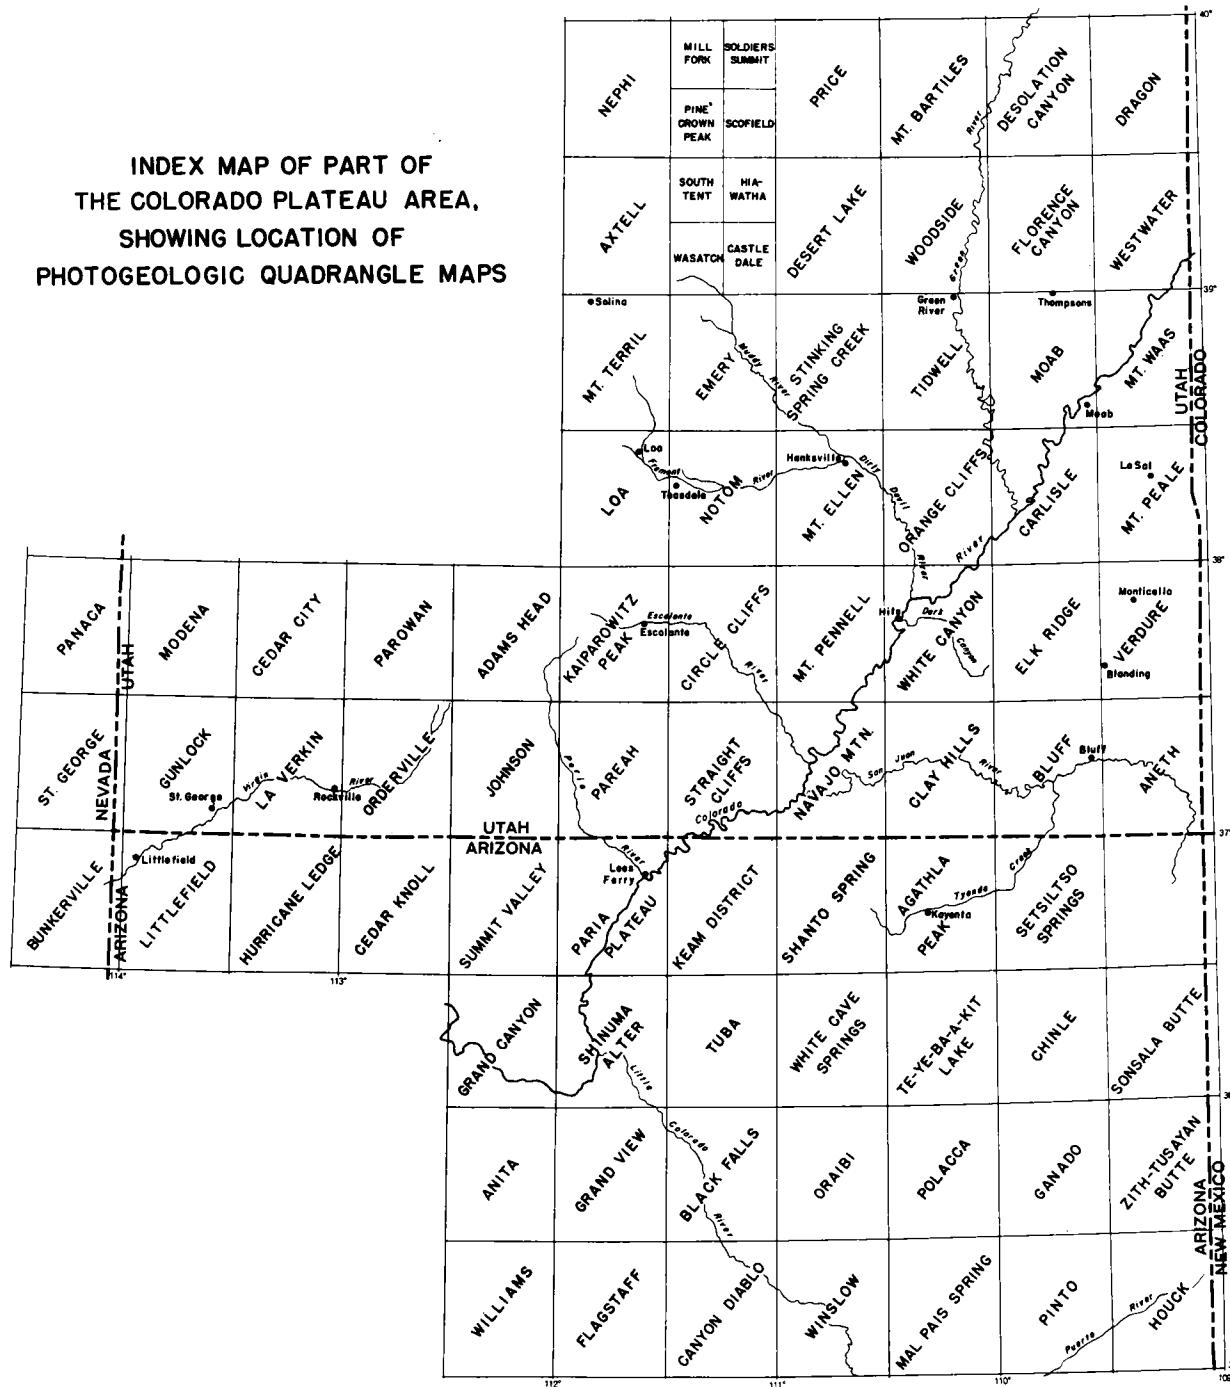 INDEX MAP OF PART OF
THE COLORADO PLATEAU AREA,
SHOWING LOCATION OF
PHOTOGEOLOGIC QUADRANGLE MAPS
40°
NEPHI
MILL
FORK
SOLDIERS
SUMMIT
PINE
CROWN
PEAK
SCOFIELD
PRICE
MT. BARTILES
River
DESOLATION
CANYON
DRAGON
AXTELL
SOUTH
TENT
HIA-
WATHA
WASATCH
CASTLE
DALE
DESERT LAKE
WOODSIDE
Green
FLORENCE
CANYON
WESTWATER
39°
Salina
Green
River
Thompsons
MT. TERRIL
EMERY
Muddy
River
STINKING
SPRING CREEK
TIDWELL
MOAB
MT. WAAS
UTAH
COLORADO
Moab
LOA
Loa
Fremont
River
Teasdale
NOTOM
Hanksville
MT. ELLEN
Dirty
Devil
River
ORANGE CLIFFS
River
CARLISLE
La Sal
MT. PEALE
38°
PANACA
UTAH
MODENA
CEDAR CITY
PAROWAN
ADAMS HEAD
KAIPAROWITZ
PEAK
Escalante
Escalante
River
CIRCLE CLIFFS
MT. PENNELL
Hite
Dark
Canyon
WHITE CANYON
ELK RIDGE
Monticello
VERDURE
Blanding
ST. GEORGE
NEVADA
GUNLOCK
St. George
Virgin
River
LA VERKIN
Rockville
ORDERVILLE
JOHNSON
Paria
River
PAREAH
STRAIGHT
CLIFFS
Colorado
NAVAJO MTN.
San Juan
River
CLAY HILLS
BLUFF
Bluff
ANETH
UTAH
ARIZONA
37°
BUNKERVILLE
ARIZONA
Littlefield
LITTLEFIELD
HURRICANE LEDGE
CEDAR KNOLL
SUMMIT VALLEY
Lees
Ferry
PARIA
PLATEAU
KEAM DISTRICT
SHANTO SPRING
AGATHLA
PEAK
Tyende
Creek
Kayenta
SETSILTSO
SPRINGS
114°
113°
GRAND CANYON
SHINUMA
ALTER
Little
Colorado
River
TUBA
WHITE CAVE
SPRINGS
TE-YE-BA-A-KIT
LAKE
CHINLE
SONSALA BUTTE
ANITA
GRAND VIEW
BLACK FALLS
ORAIBI
POLACCA
GANADO
ZITH-TUSAYAN
BUTTE
ARIZONA
NEW MEXICO
WILLIAMS
FLAGSTAFF
CANYON DIABLO
WINSLOW
MAL PAIS SPRING
PINTO
Puerto
River
HOUCK
112°
111°
110°